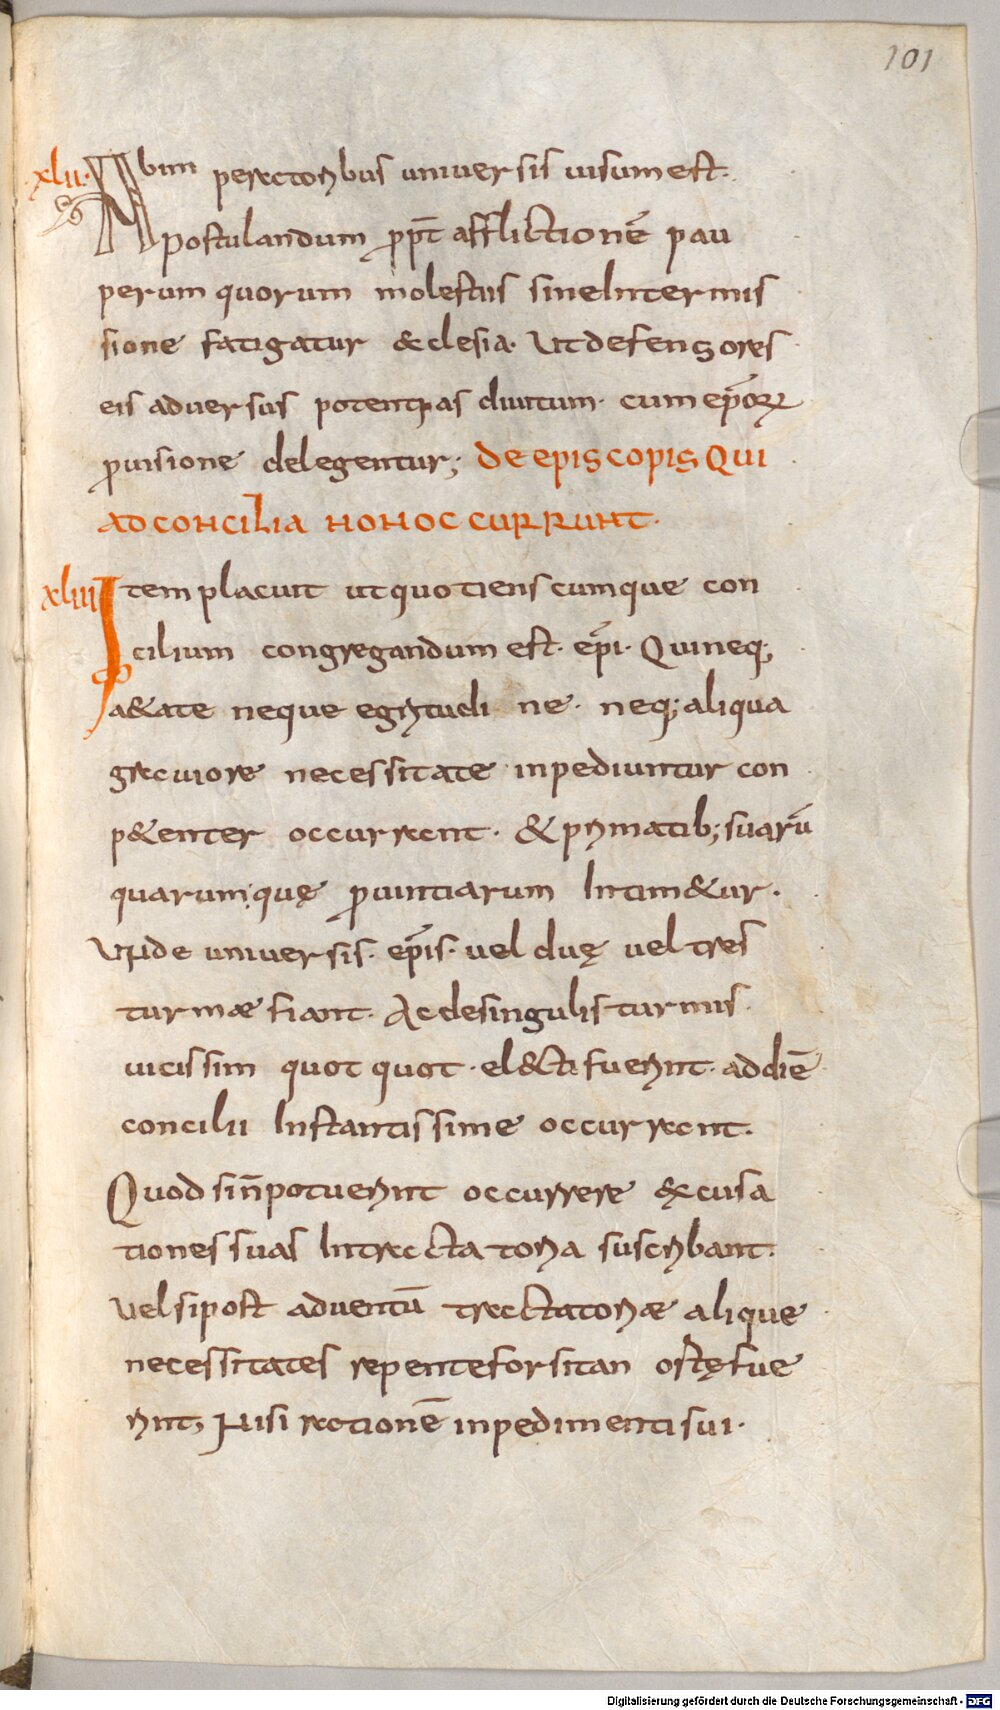 101
xlii. Abim peractoribus universis uisum est.
postulandum ꝓpt̄ afflictionē pau
perum quorum molestiis sineInter mis
sione fatigatur &clesia. Ut defensores
eis adversus potentias diuitum. cum ep̄oꝝ
ꝓuisione delegentur; DE EPISCOPIS QUI
AD CONCILIA NON OCCURRUNT.
xliii Item placuit ut quotienscumque con
cilium congregandum est. ep̄i. Qui neq;
a&ate neque egritudi ne. neq; aliqua
graviore necessitate inpediuntur con
p&enter occurrant. & primatib; suarū
quarumquę ꝓuintiarum Intim&ur.
Unde universis. ep̄is. vel duę vel tres
turmæ fiant. Ac desingulis turmis
uicissim quot quot. el&cti fuerint. ad diē
concilii Instantissime occurrant.
Quod si n̄ potuerint occurrere excusa
tiones suas Intractatoria suscribant.
vel si post adventū tractatoriæ alique
necessitates repente forsitan ortę fue
rint, Nisi rationē inpedimenti sui.
Digitalisierung gefördert durch die Deutsche Forschungsgemeinschaft - DFG